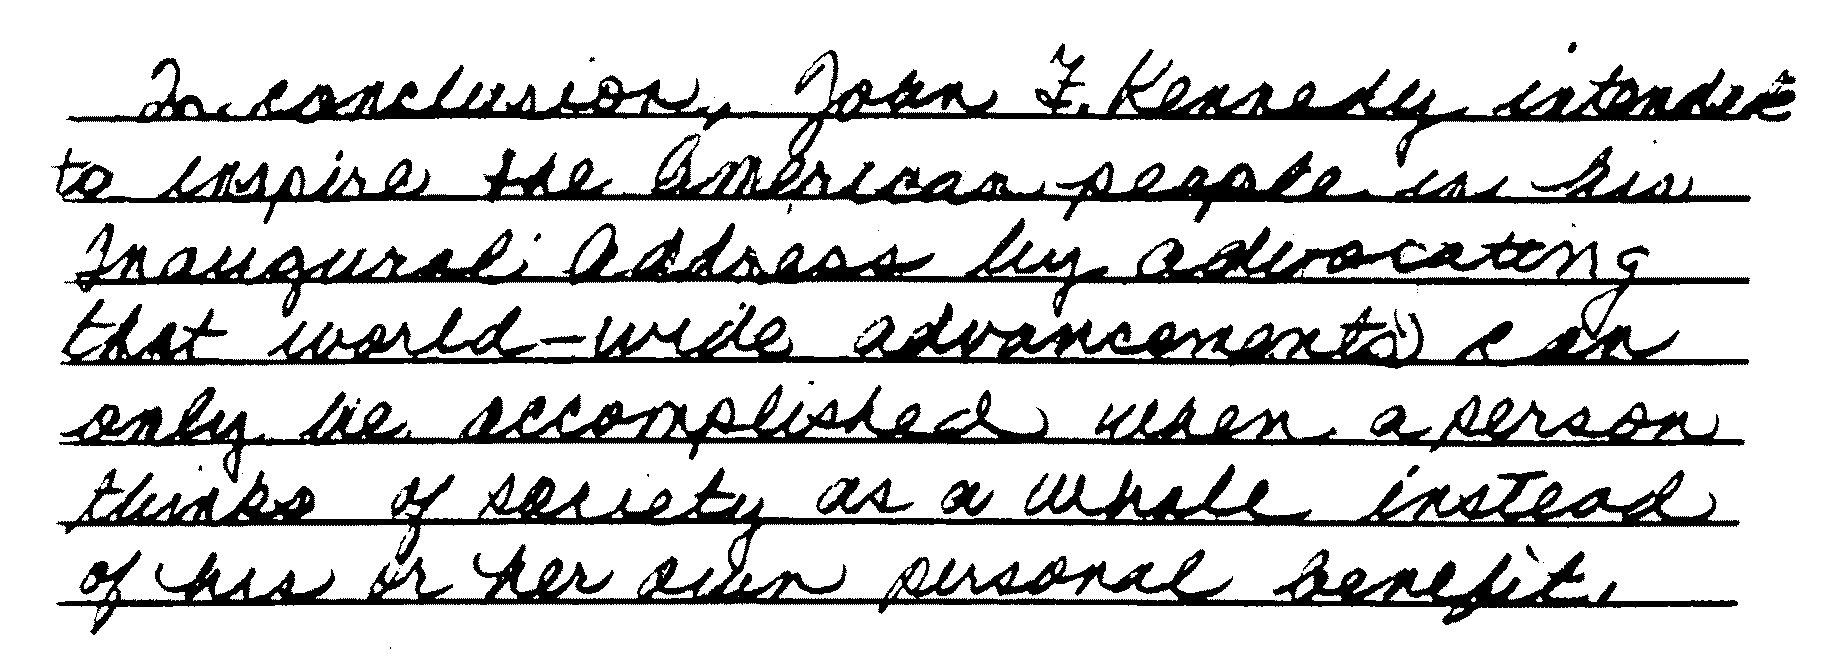 In conclusion, John F. Kennedy intended
to inspire the American people in his
Inaugural Address by advocating
that world-wide advancements can
only be accomplished when a person
thinks of society as a whole instead
of his or her own personal benefit.